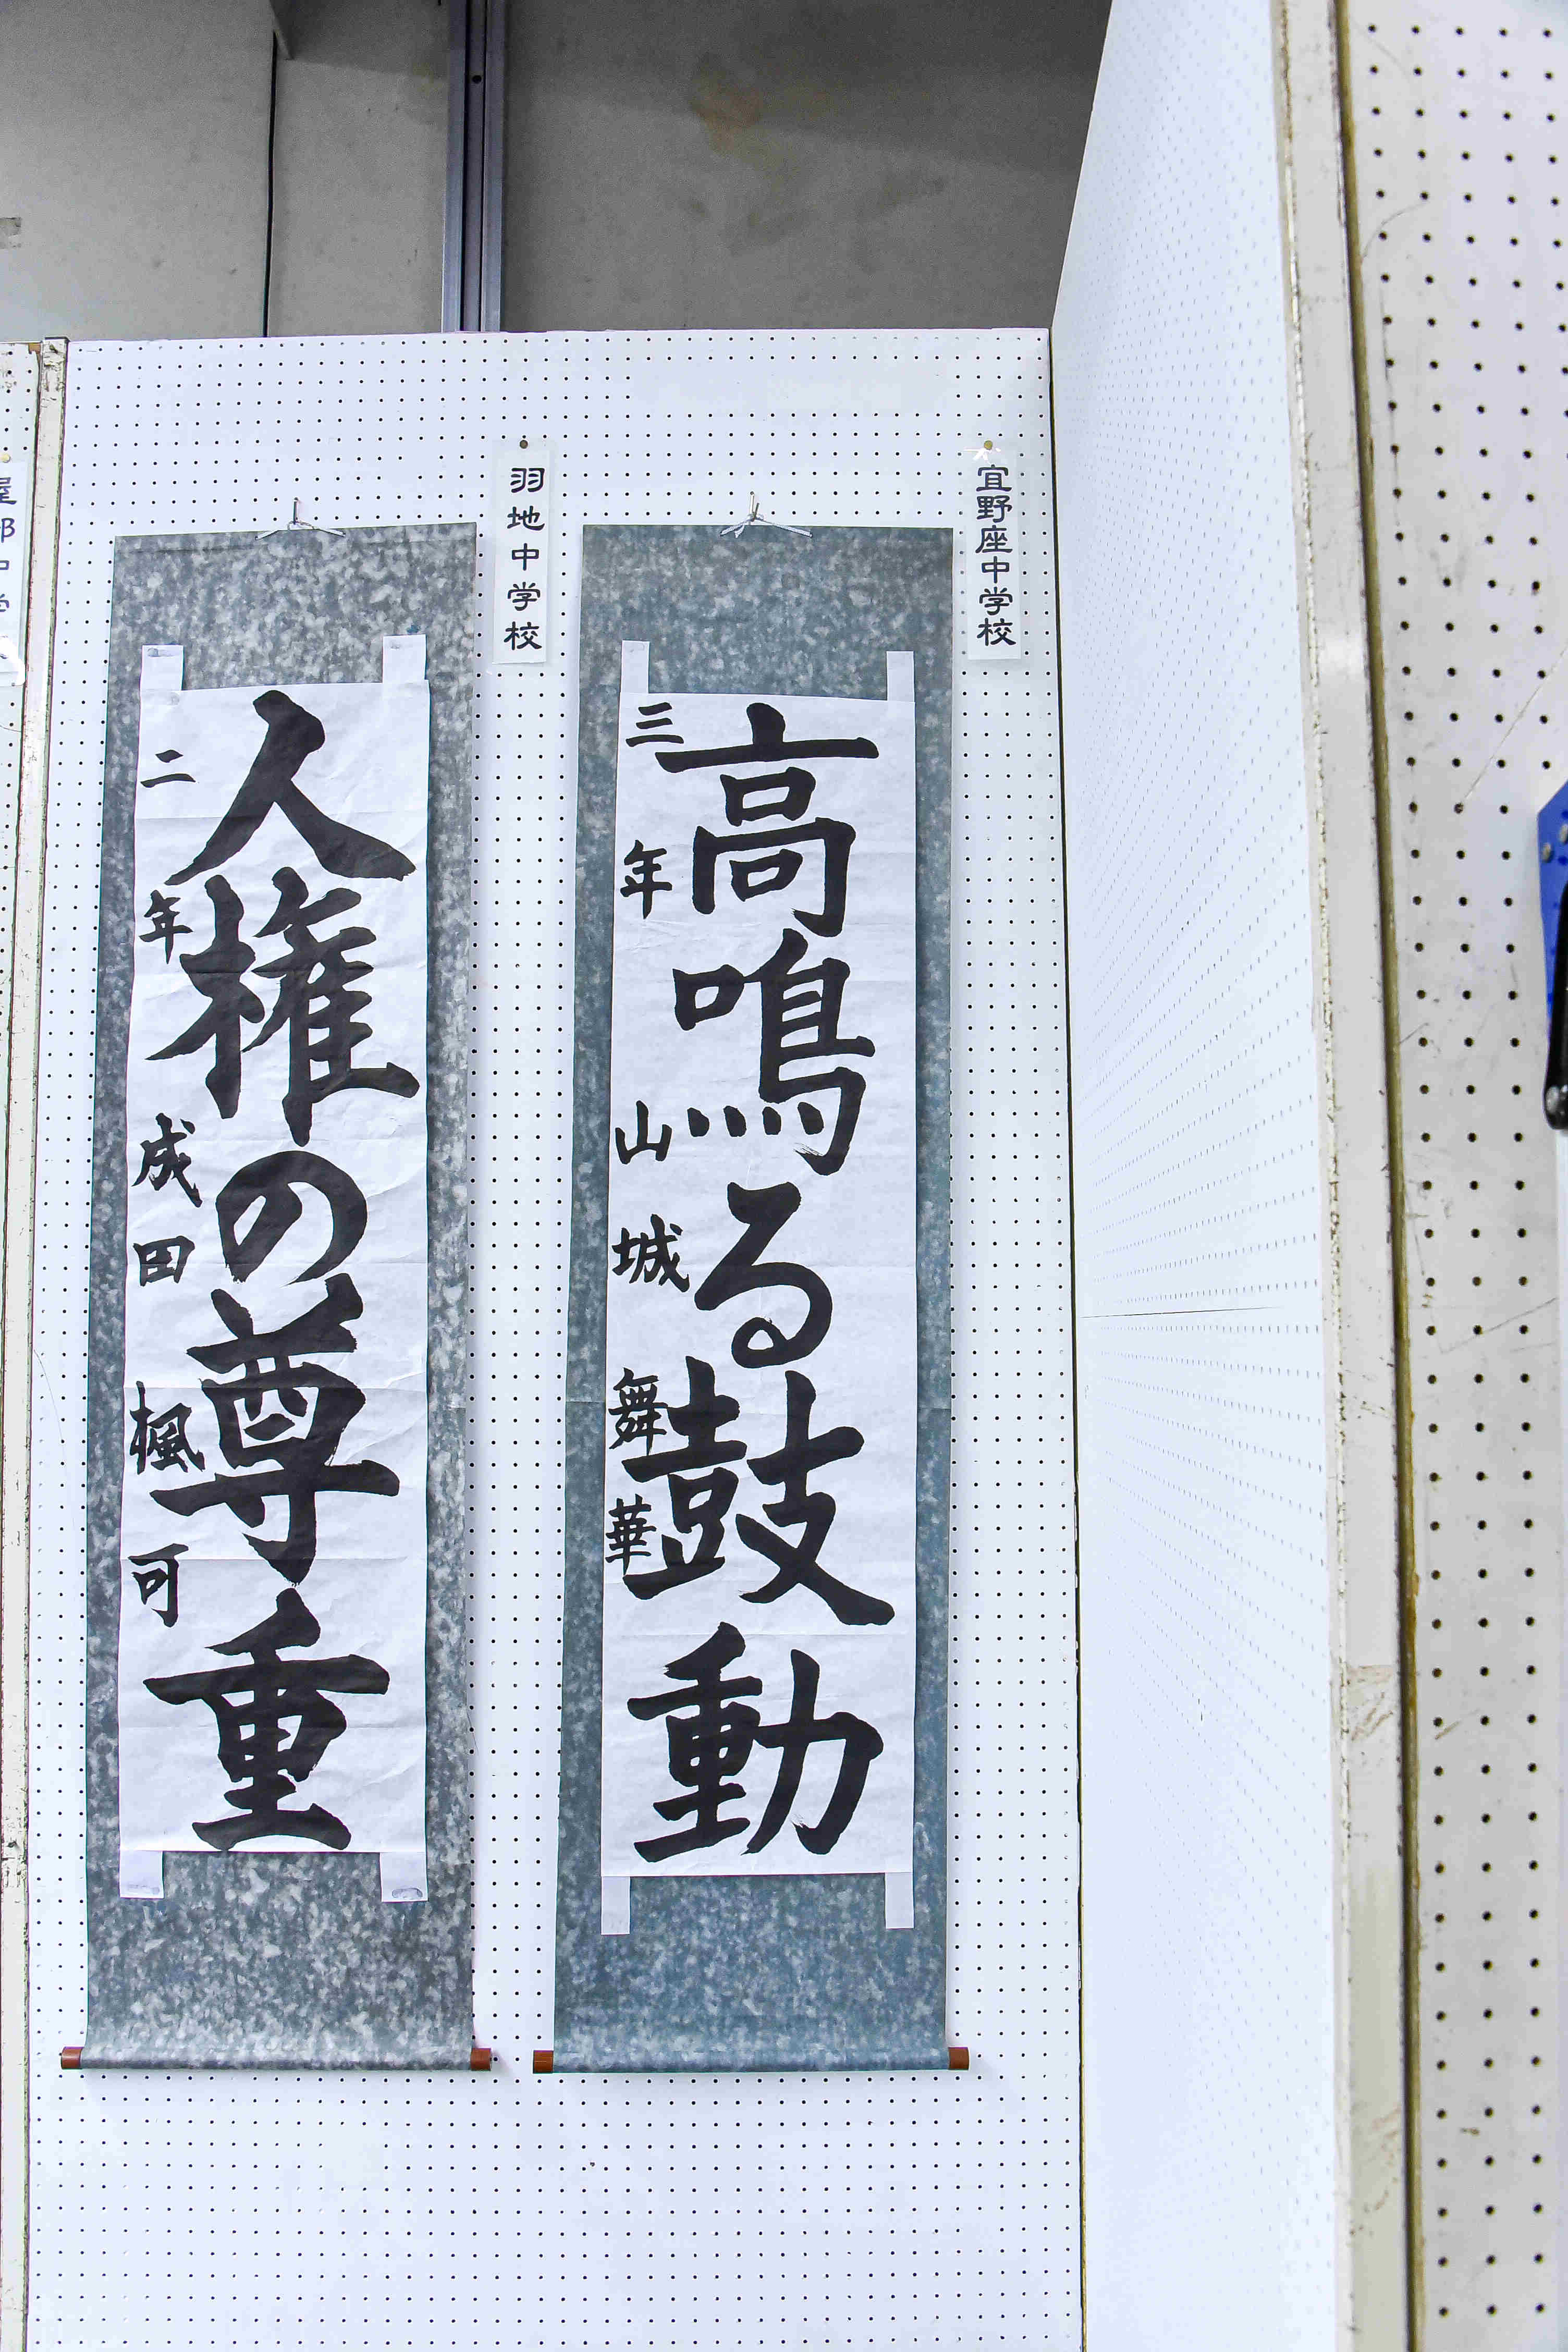 宜野座中学校
高鳴る鼓動
三年 山城舞華
羽地中学校
人権の尊重
二年 成田楓可
屋部中学